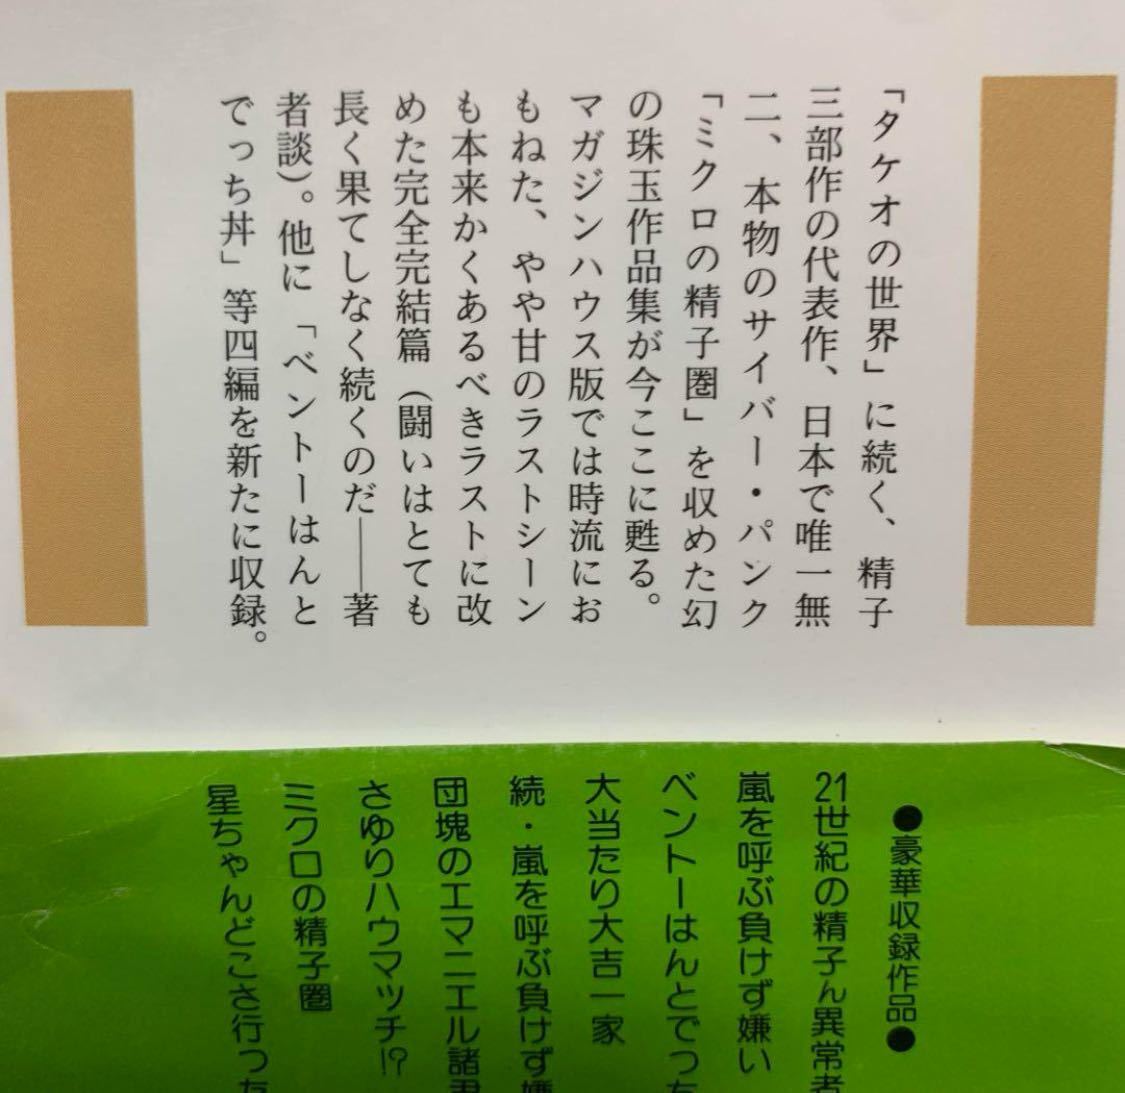 「タケオの世界」に続く、精子
三部作の代表作、日本で唯一無
二、本物のサイバー・パンク
「ミクロの精子圏」を収めた幻
の珠玉作品集が今ここに甦る。
マガジンハウス版では時流にお
もねた、やや甘のラストシーン
も本来かくあるべきラストに改
めた完全完結篇（闘いはとても
長く果てしなく続くのだ――著
者談）。他に「ベントーはんと
でっち丼」等四編を新たに収録。
●豪華収録作品●
21世紀の精子ん異常者
嵐を呼ぶ負けず嫌い
ベントーはんとでっち
大当たり大吉一家
続・嵐を呼ぶ負けず嫌
団塊のエマニエル諸君
さゆりハウマッチ!?
ミクロの精子圏
星ちゃんどこさ行った